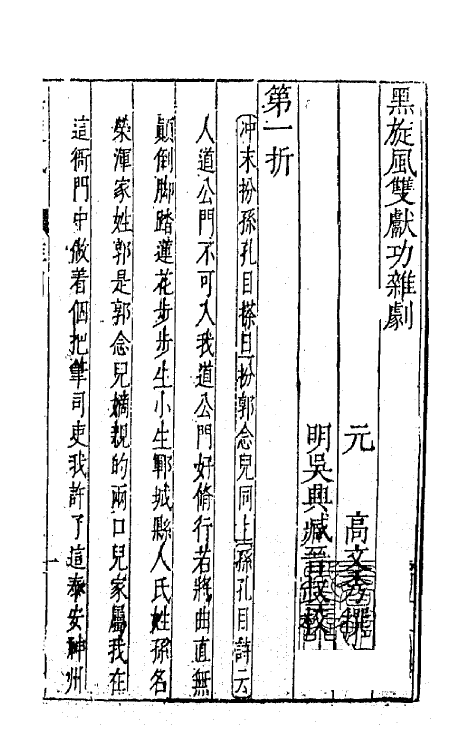 黑旋風雙獻功雜劇
元 高文秀撰
明吳興臧晉叔校
第一折
冲末扮孫孔目搽旦扮郭念兒同上孫孔目詩云
人道公門不可入我道公門好脩行若將曲直無
顛倒脚踏蓮花步步生小生鄆城縣人氏姓孫名
榮渾家姓郭是郭念兒嫡親的兩口兒家屬我在
這衙門中做着個把筆司吏我許了這泰安神州
一